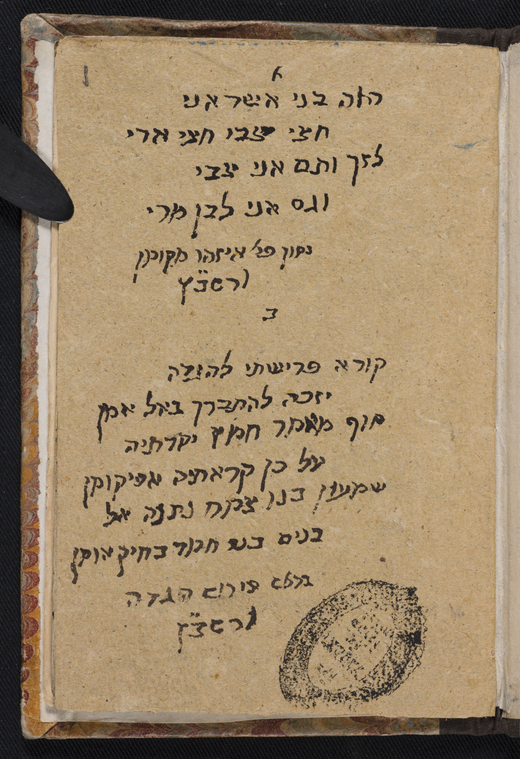 א
הזה בני אשר אני
חצי צבי חצי ארי
לזך ותם אני צבי
וגם אני לבן מרי
פי' איזהו מקומן
לרשב"ץ
ב
קורא פרישתי להגדה
יזכה להתברך באל אמן
סוף מאמר חמץ יקרתיה
על כן קראתיה אפיקומן
שמעון בנו צמח נתנה אל
בנים בחיק אומן
פירוש הגדה
לרשב"ץ